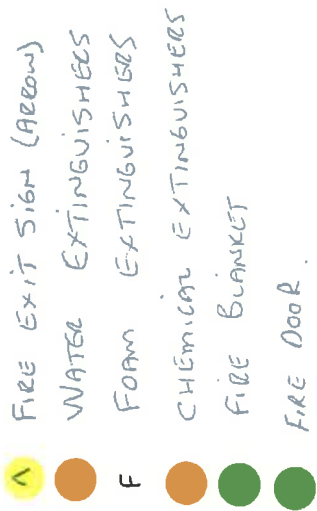 ^ FIRE EXIT SIGN (ARROW)
WATER EXTINGUISHERS
F FOAM EXTINGUISHERS
CHEMICAL EXTINGUISHERS
FIRE BLANKET
FIRE DOOR.